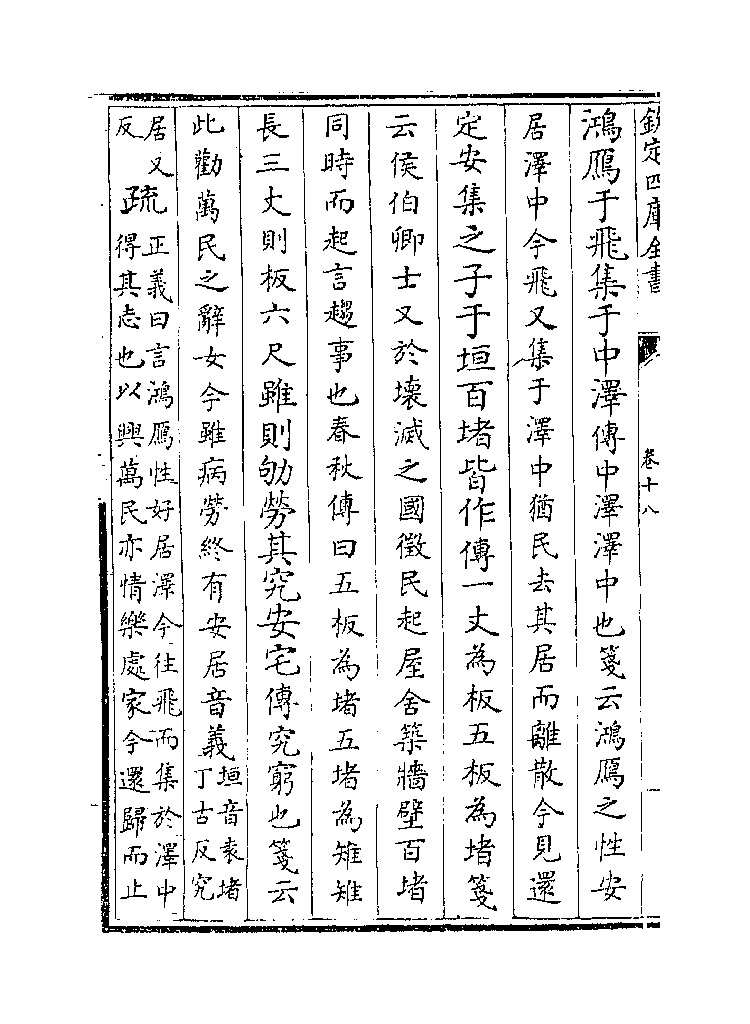 欽定四庫全書
卷十八
鴻鴈于飛集于中澤傳中澤澤中也箋云鴻鴈之性安
居澤中今飛又集于澤中猶民去其居而離散今見還
定安集之子于垣百堵皆作傳一丈為板五板為堵箋
云侯伯卿士又於壞滅之國徴民起屋舍築牆壁百堵
同時而起言趨事也春秋傳曰五板為堵五堵為雉雉
長三丈則板六尺雖則劬勞其究安宅傳究窮也箋云
此勸萬民之辭女今雖病勞終有安居音義垣音袁堵
丁古反究
居又
反疏正義曰言鴻鴈性好居澤今往飛而集於澤中
得其志也以興萬民亦情樂處家今還歸而止